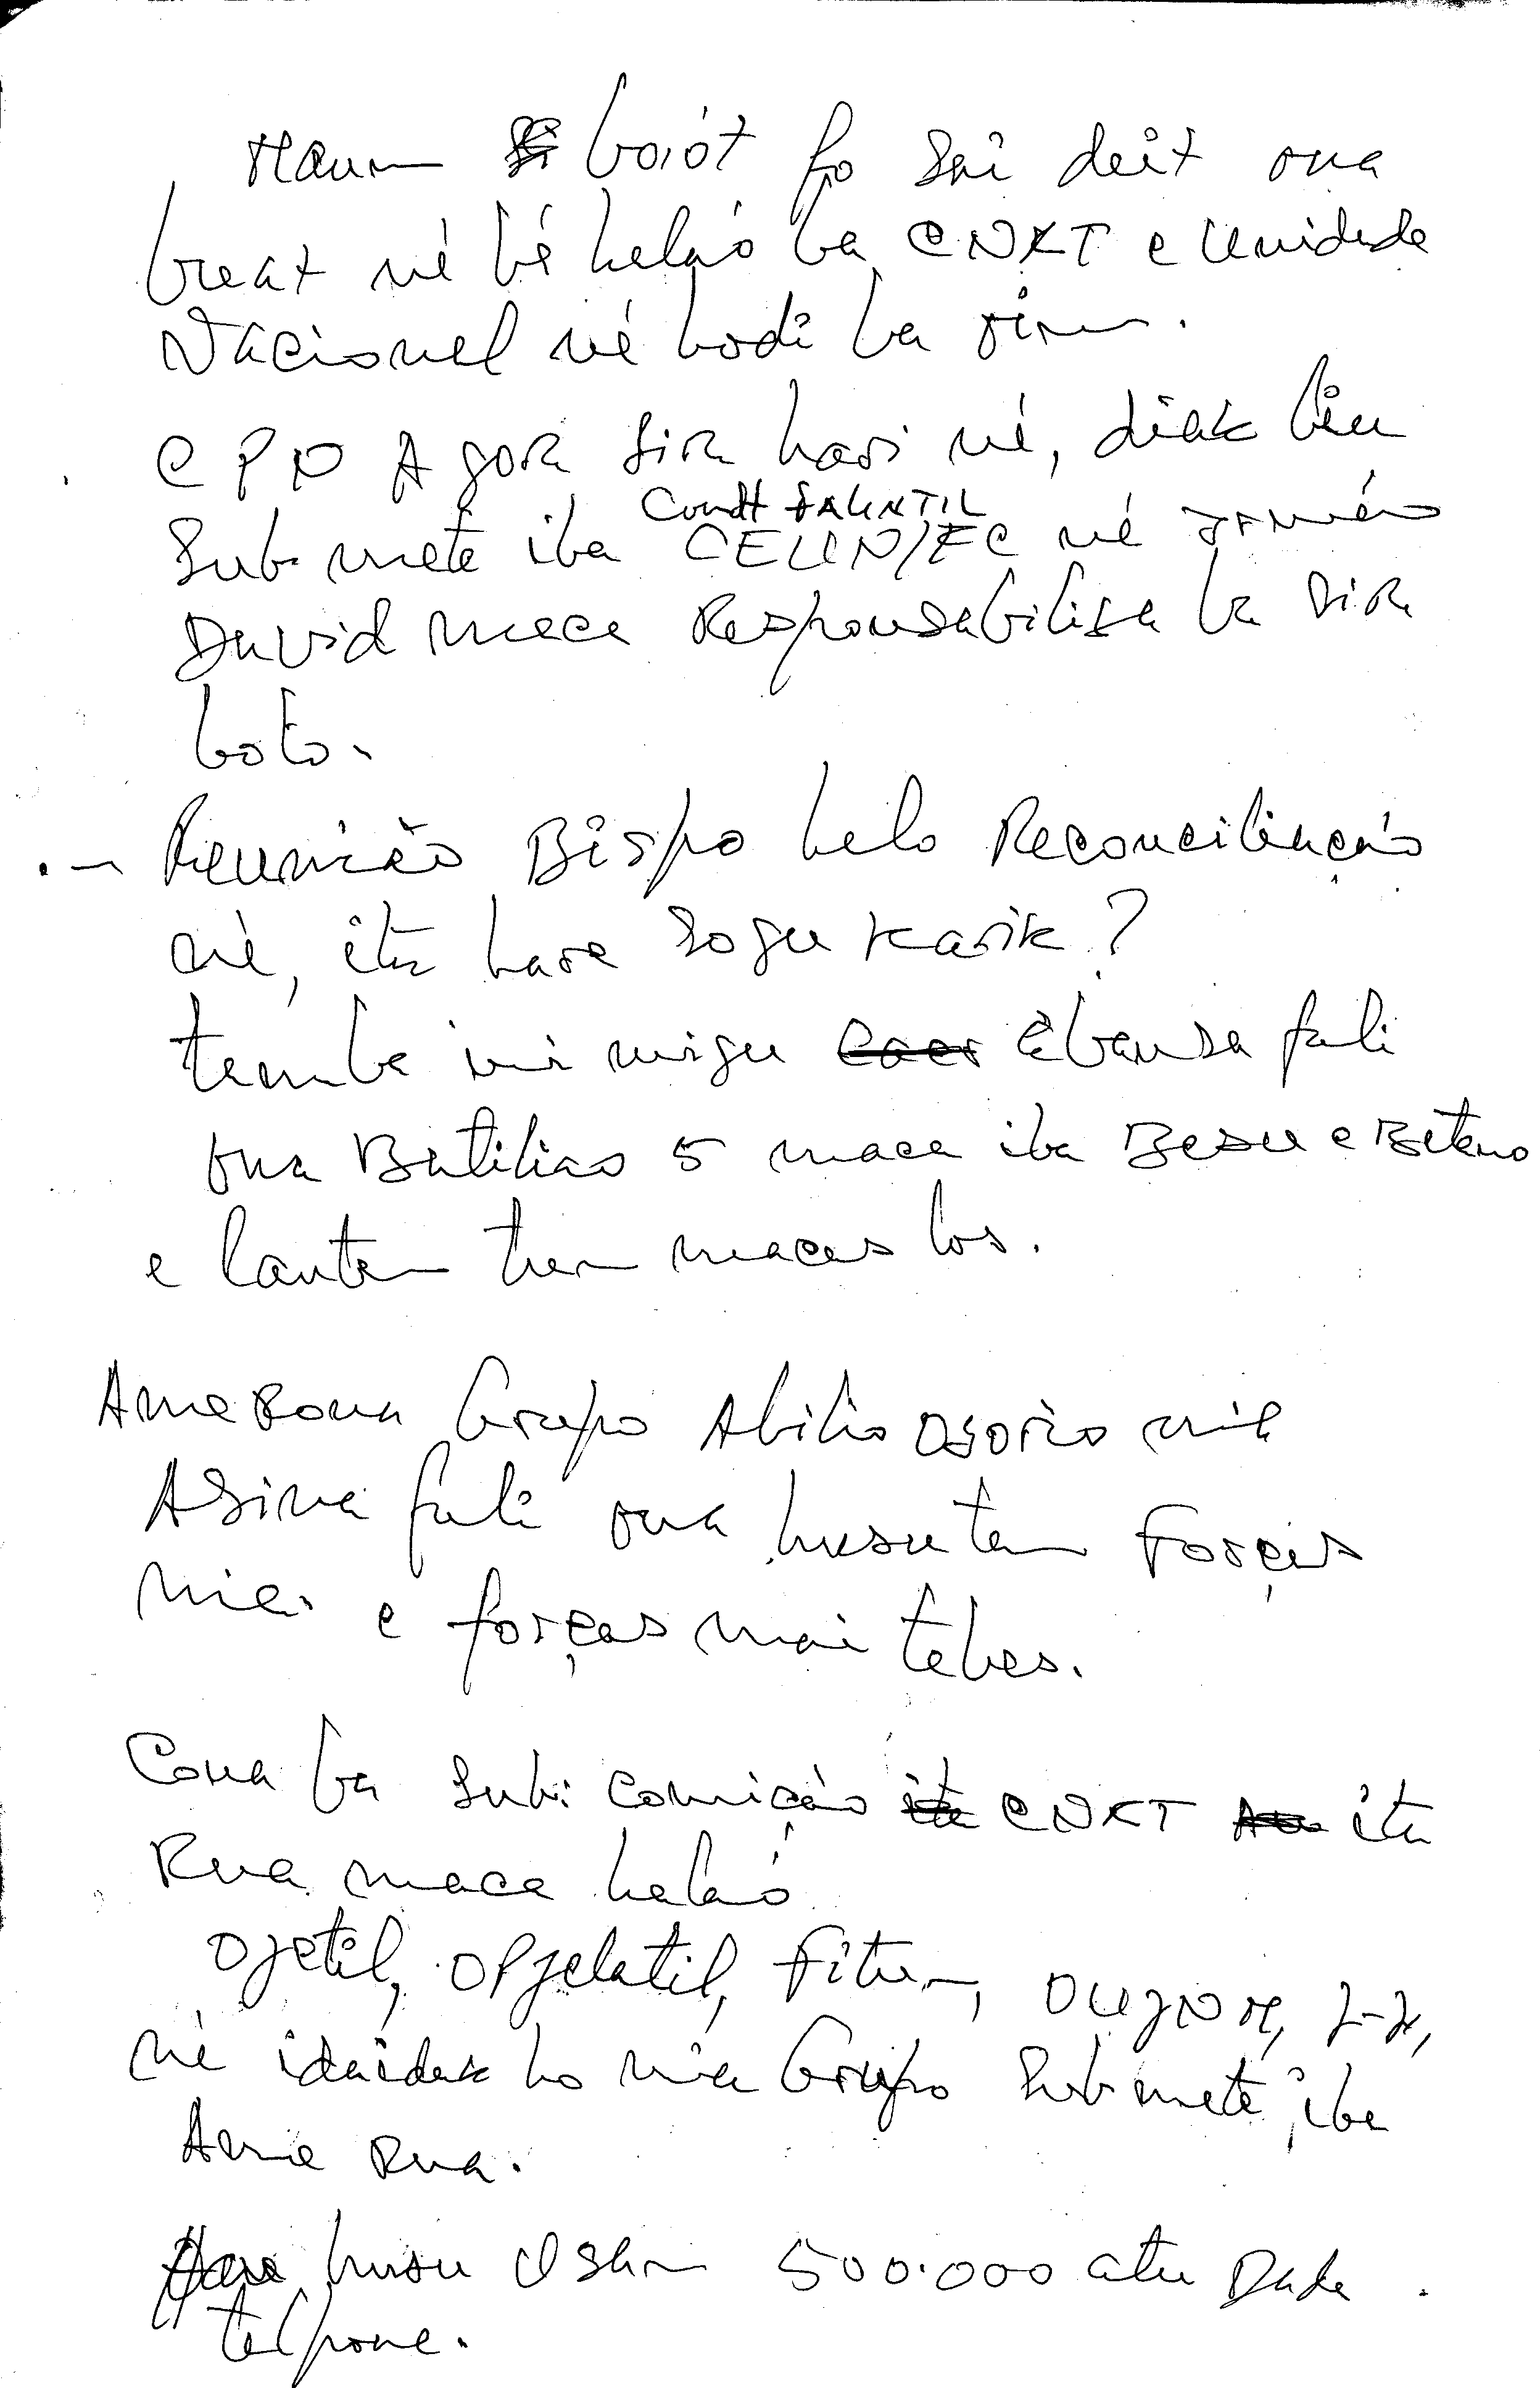 Maun boiót fo sai deit ona
breat né bé helaó ba CNRT e Unidade
Nacional né hodi ba oin.
CPD Agora sira hasi né, diak liu
Submete iba CELUN/FC né Irmão
Condt FALINTIL
David maca Responsabilisa ba sira
boto.
.- Reunião Bispo belo Reconciliação
né, ita hare sogu karik?
tamba inimigu ébansa fali
ona Batiliao 5 maca iba Besu e Betano
e lantem tun macas los.
Ame Rona Grupo Abilio Osorio nia
Asina fali ona husu tam Forças
mai e forças mai tebes.
Cona ba sub: comição CNRT ita
Rua maca helaó
Ojetil, Opjelatil, Fitun, OUJNR, 7-7,
né idaidak ho nia Grupo Submete iba
Ame Rua.
husu Osan 500.000 atu
telpone.